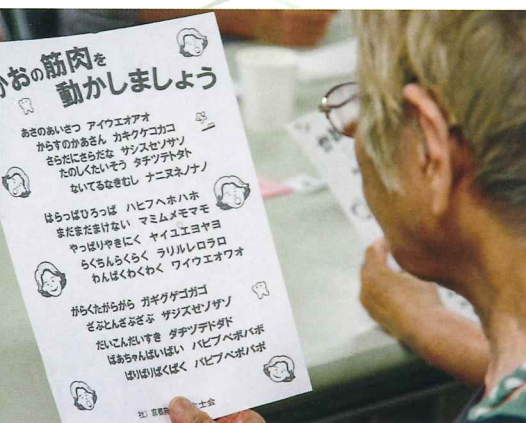 かおの筋肉を
動かしましょう
あさのあいさつ アイウエオアオ
からすのかあさん カキクケコカコ
さらだにさらだな サシスセソサソ
たのしくたいそう タチツテトタト
ないてるなきむし ナニヌネノナノ
はらっぱひろっぱ ハヒフヘホハホ
まだまだまけない マミムメモマモ
やっぱりやきにく ヤイユエヨヤヨ
らくちんらくらく ラリルレロラロ
わんぱくわくわく ワイウエオワオ
からくたがらがら ガギグゲゴガゴ
ざぶとんざぶざぶ ザジズゼゾザゾ
だいこんだいすき ダヂヅデドダド
ばあちゃんばいばい バビブベボバボ
ぱりぱりぱくぱく パピプペポパポ
士会